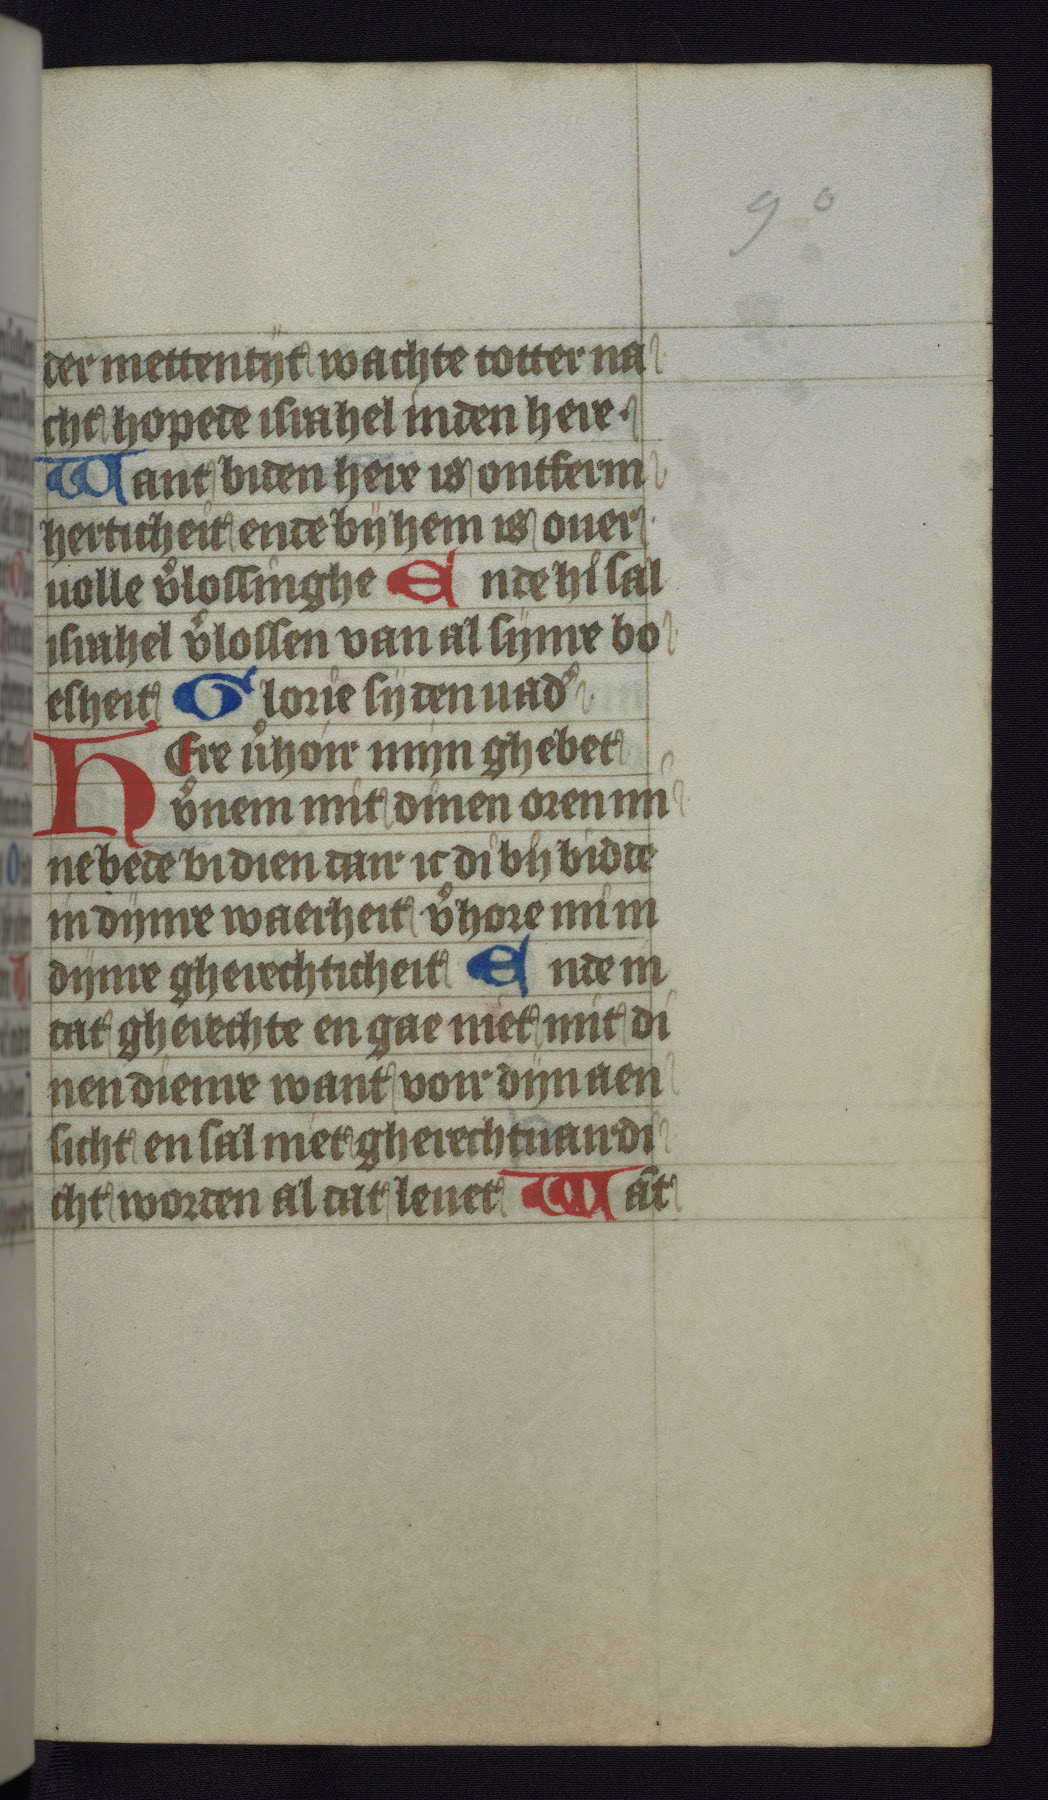 90
der mettentijt wachte totter na
cht hopede israhel inden here.
Want biden here is ontferm
herticheit ende bij hem is ouer
uolle v̊lossinghe Ende hi sal
israhel v̊lossen van al sijnre bo
esheit Glorie sij den uad̊
Here v̊hoir mijn ghebet
v̊nem mit dinen oren mi
ne bede bi dien dair ic di bij bidde
in dijnre waerheit v̊hore mi in
dijnre gherechticheit Ende in
dat gherechte en gae niet mit di
nen dienre want voir dijn aen
sicht en sal niet gherechtuaerdi
cht worden al dat leuet Wāt